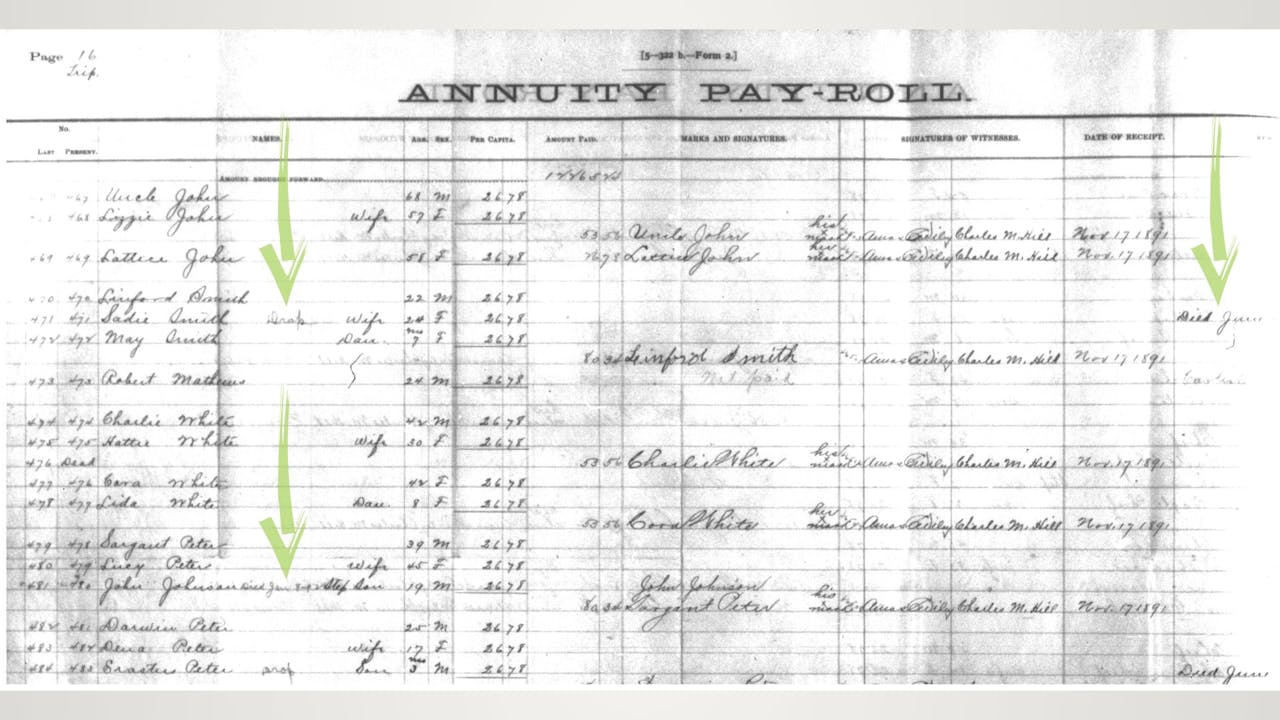 Page 16
Trip.
[5—322 b.—Form 2.]
ANNUITY PAY-ROLL.
No.
LAST PRESENT. NAMES. AGE. SEX. PER CAPITA. AMOUNT PAID. MARKS AND SIGNATURES. SIGNATURES OF WITNESSES. DATE OF RECEIPT.
AMOUNT BROUGHT FORWARD
467 Uncle John 68 M 26 78
468 Lizzie John Wife 57 F 26 78
53 56 Uncle John his mark Charles M. Hill Nov 17 1891
469 469 Lattice John 58 F 26 78 Lattice John her mark Charles M. Hill Nov. 17 1891
470 470 Linford Smith 22 M 26 78
471 471 Sadie Smith Drop Wife 24 F 26 78 Died June
472 472 May Smith Dau. 7 mos F 26 78
80 34 Linford Smith Charles M. Hill Nov 17 1891
Not paid
473 473 Robert Mathews 24 M 26 78
474 474 Charlie White 42 M 26 78
475 475 Hattie White Wife 30 F 26 78
476 Dead 53 56 Charlie White his mark Charles M. Hill Nov. 17 1891
477 476 Cora White 42 F 26 78
478 477 Lida White Dau 8 F 26 78
53 56 Cora White her mark Charles M. Hill Nov. 17 1891
479 478 Sargant Peter 39 M 26 78
480 479 Lucy Peter Wife 45 F 26 78
481 480 John Johnson Died Jan Step Son 19 M 26 78 John Johnson
80 34 Sargant Peter his mark Charles M. Hill Nov. 17 1891
482 481 Darwin Peter 25 M 26 78
483 482 Dena Peter Wife 17 F 26 78
484 483 Erastus Peter drop Son 3 mos M 26 78 Died June